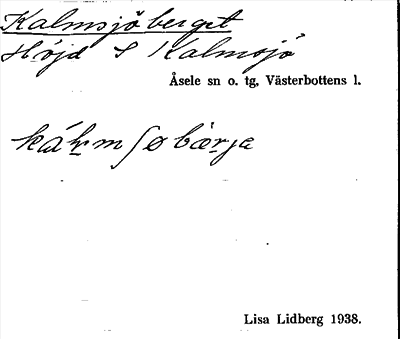 Kalmsjöberget
Höjd S Kalmsjö
Åsele sn o. tg, Västerbottens l.
Lisa Lidberg 1938.